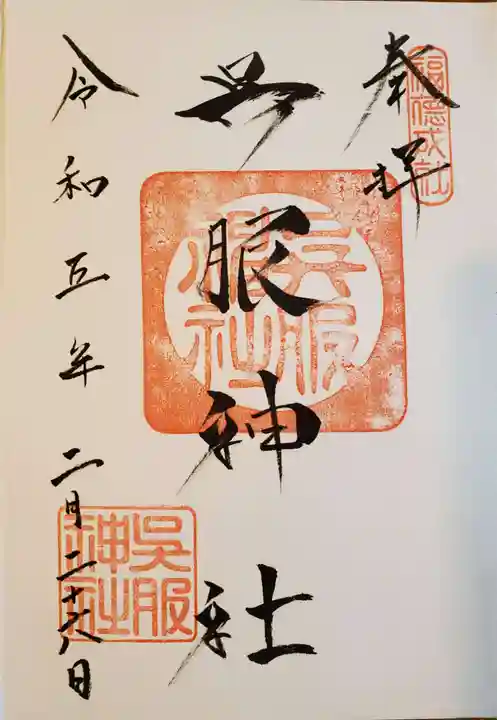 奉拝
福徳成社
呉服神社
呉服神社
令和五年 二月二十八日
吳服神社